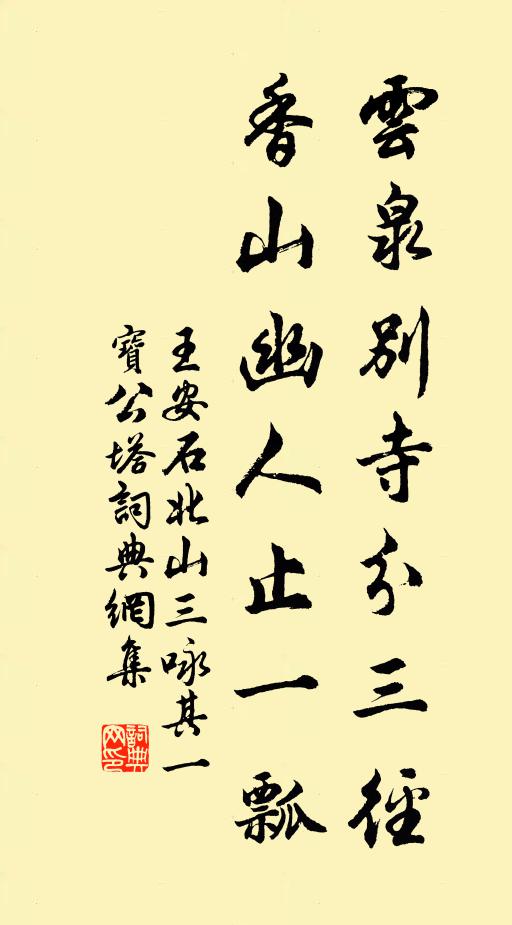 雲泉別寺分三徑
香山幽人止一瓢
王安石北山三咏其一
寶公塔詞典網集
詞典網印